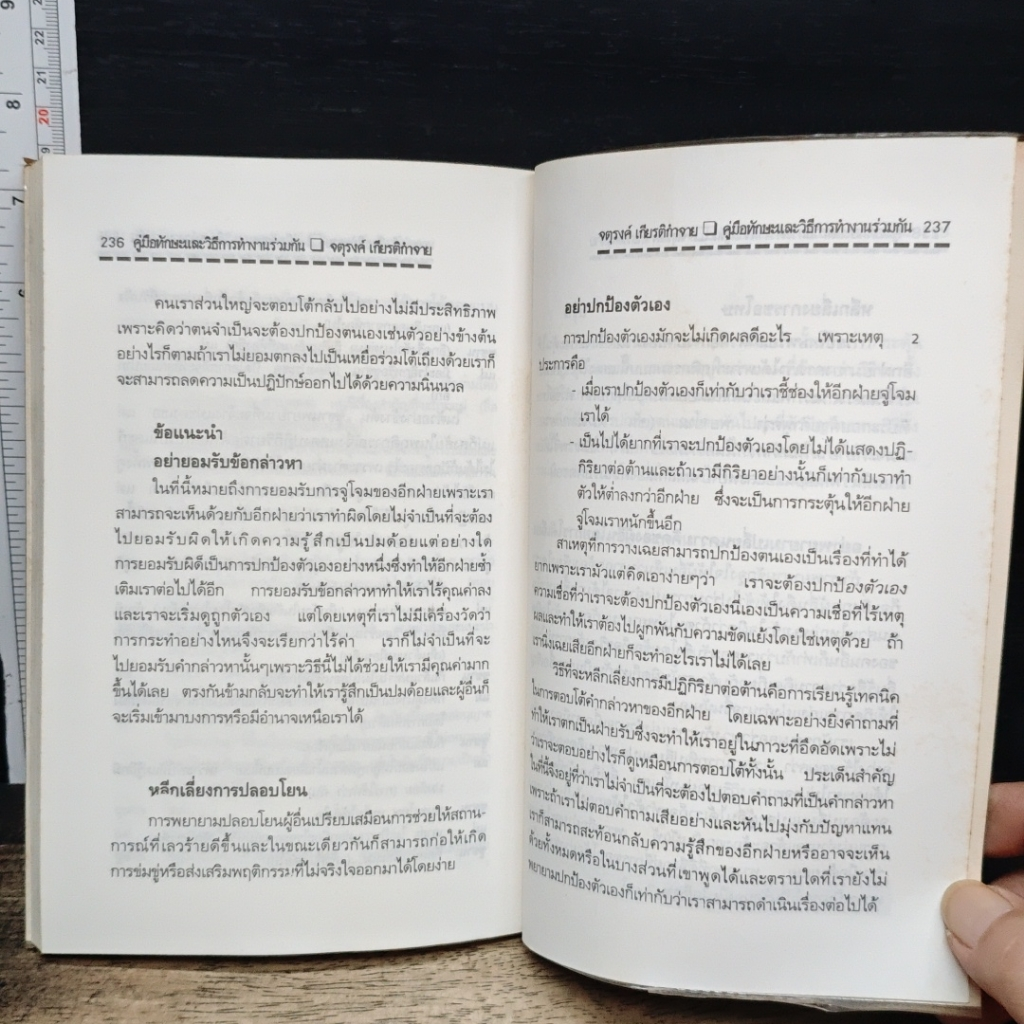 236 คู่มือทักษะและวิธีการทำงานร่วมกัน ❑ จตุรงค์ เกียรติกำจาย
คนเราส่วนใหญ่จะตอบโต้กลับไปอย่างไม่มีประสิทธิภาพ
เพราะคิดว่าตนจำเป็นจะต้องปกป้องตนเองเช่นตัวอย่างข้างต้น
อย่างไรก็ตามถ้าเราไม่ยอมตกลงไปเป็นเหยื่อร่วมโต้เถียงด้วยเราก็
จะสามารถลดความเป็นปฏิปักษ์ออกไปได้ด้วยความนิ่มนวล
ข้อแนะนำ
อย่ายอมรับข้อกล่าวหา
ในที่นี้หมายถึงการยอมรับการจู่โจมของอีกฝ่ายเพราะเรา
สามารถจะเห็นด้วยกับอีกฝ่ายว่าเราทำผิดโดยไม่จำเป็นที่จะต้อง
ไปยอมรับผิดให้เกิดความรู้สึกเป็นปมด้อยแต่อย่างใด
การยอมรับผิดิ็เป็นการปกป้องตัวเองอย่างหนึ่งซึ่งทำให้อีกฝ่ายซ้ำ
เติมเราต่อไปได้อีก การยอมรับข้อกล่าวหาทำให้เราไร้คุณค่าลง
และเราจะเริ่มดูถูกตัวเอง แต่โดยเหตุที่เราไม่มีเครื่องวัดว่า
การกระทำอย่างไหนจึงจะเรียกว่าไร้ค่า เราก็ไม่จำเป็นที่จะ
ไปยอมรับคำกล่าวหานั้นๆเพราะวิธีนี้ไม่ได้ช่วยให้เรามีคุณค่ามาก
ขึ้นได้เลย ตรงกันข้ามกลับจะทำให้เรารู้สึกเป็นปมด้อยและผู้อื่นก็
จะเริ่มเข้ามาบงการหรือมีอำนาจเหนือเราได้
หลีกเลี่ยงการปลอบโยน
การพยายามปลอบโยนผู้อื่นเปรียบเสมือนการช่วยให้สถาน-
การณ์ที่เลวร้ายดีขึ้นและในขณะเดียวกันก็สามารถก่อให้เกิด
การข่มขู่หรือส่งเสริมพฤติกรรมที่ไม่จริงใจออกมาได้โดยง่าย
จตุรงค์ เกียรติกำจาย ❑ คู่มือทักษะและวิธีการทำงานร่วมกัน 237
อย่าปกป้องตัวเอง
การปกป้องตัวเองมักจะไม่เกิดผลดีอะไร เพราะเหตุ 2
ประการคือ
- เมื่อเราปกป้องตัวเองก็เท่ากับว่าเราชี้ช่องให้อีกฝ่ายจู่โจม
เราได้
- เป็นไปได้ยากที่เราจะปกป้องตัวเองโดยไม่ได้แสดงปฏิ-
กิริยาต่อต้านและถ้าเรามีกิริยาอย่างนั้นก็เท่ากับเราทำ
ตัวให้ต่ำลงกว่าอีกฝ่าย ซึ่งจะเป็นการกระตุ้นให้อีกฝ่าย
จู่โจมเราหนักขึ้นอีก
สาเหตุที่การวางเฉยสามารถปกป้องตนเองเป็นเรื่องที่ทำได้
ยากเพราะเรามัวแต่คิดเอาง่ายๆว่า เราจะต้องปกป้องตัวเอง
ความเชื่อที่ว่าเราจะต้องปกป้องตัวเองนี่เองเป็นความเชื่อที่ไร้เหตุ
ผลและทำให้เราต้องไปผูกพันกับความขัดแย้งโดยใช่เหตุด้วย ถ้า
เรานิ่งเฉยเสียอีกฝ่ายก็จะทำอะไรเราไม่ได้เลย
วิธีที่จะหลีกเลี่ยงการมีปฏิกิริยาต่อต้านคือการเรียนรู้เทคนิค
ในการตอบโต้คำกล่าวหาของอีกฝ่าย โดยเฉพาะอย่างยิ่งคำถามที่
ทำให้เราตกเป็นฝ่ายรับซึ่งจะทำให้เราอยู่ในภาวะที่อึดอัดเพราะไม่
ว่าเราจะตอบอย่างไรก็ดูเหมือนการตอบโต้ทั้งนั้น ประเด็นสำคัญ
ในที่นี้จึงอยู่ที่ว่าเราไม่จำเป็นที่จะต้องไปตอบคำถามที่เป็นคำกล่าวหา
เพราะถ้าเราไม่ตอบคำถามเสียอย่างและหันไปมุ่งกับปัญหาแทน
เราก็สามารถสะท้อนกลับความรู้สึกของอีกฝ่ายหรืออาจจะเห็น
ด้วยทั้งหมดหรือในบางส่วนที่เขาพูดได้และตราบใดที่เรายังไม่
พยายามปกป้องตัวเองก็เท่ากับว่าเราสามารถดำเนินเรื่องต่อไปได้
9
8
7
22
21
20